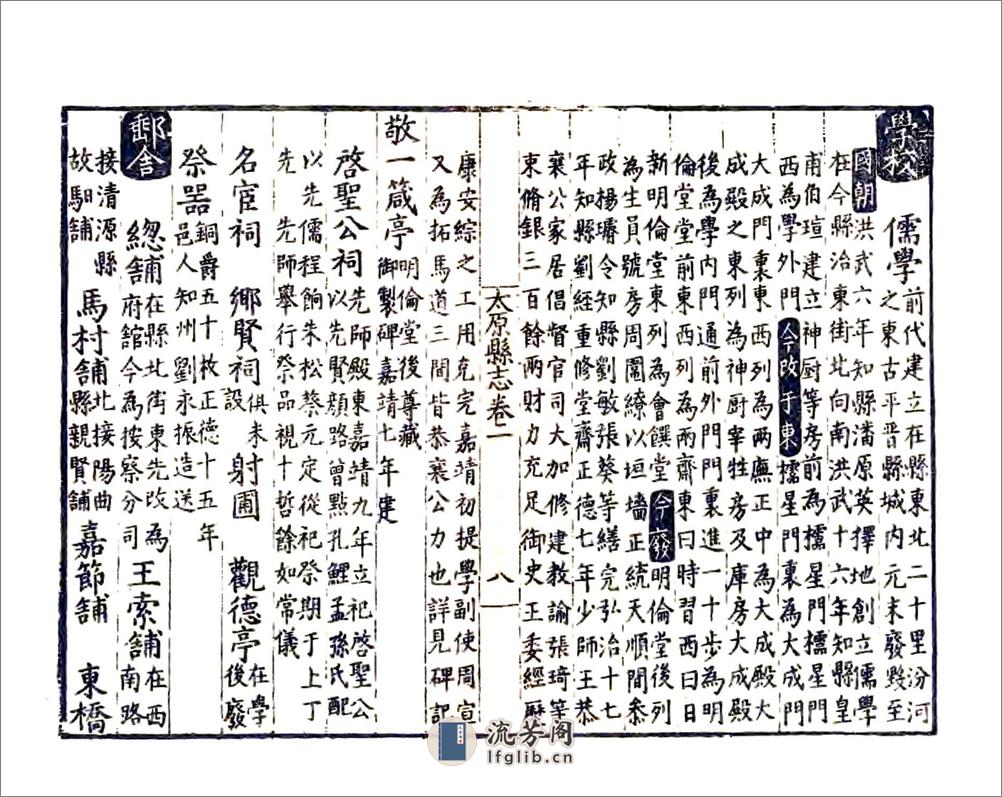 學校
儒學前代建立在縣東北二十里汾河
之東古平晉縣城内元末廢毀至
國朝洪武六年知縣潘原英擇地創立儒學
在今縣治東街北向南洪武十六年知縣皇
甫伯瑄建立神厨等房前為欞星門欞星門
西為學外門今改于東欞星門裏為大成門
大成門裏東西列為兩廡正中為大成殿大
成殿之東列為神厨宰牲房及庫房大成殿
後為學内門通前外門門裏進一十步為明
倫堂堂前東西列為兩齋東曰時習西曰日
新明倫堂東列為會饌堂今廢明倫堂後列
為生員號房周圍繚以垣墻正統天順間叅
政楊璿令知縣劉敏張葵等繕完弘治十七
年知縣劉經重修堂齋正德七年少師王恭
襄公家居倡督官司大加修建教諭張琦等
束脩銀三百餘兩財力充足御史王委經歷
太原縣志卷二
八
康安綜之工用克完嘉靖初提學副使周宣
又為拓馬道三間皆恭襄公力也詳見碑記
敬一箴亭明倫堂後尊藏
御製碑嘉靖七年建
啓聖公祠先師殿東嘉靖九年立祀啓聖公
以先賢顔路曾點孔鯉孟孫氏配
以先儒程餉朱松蔡元定從祀祭期于上丁
先先師舉行祭品視十哲餘如常儀
名宦祠 鄉賢祠俱未設 射圃 觀德亭在學後廢
祭噐銅爵五十枚正德十五年
邑人知州劉永振造送
郵舍
總舖在縣北街東先改為
府館今為按察分司
王索舖在西南路
接清源縣
故馹舖
馬村舖北接陽曲
縣親賢舖
嘉節舖 東橋
流芳阁
lfglib.cn